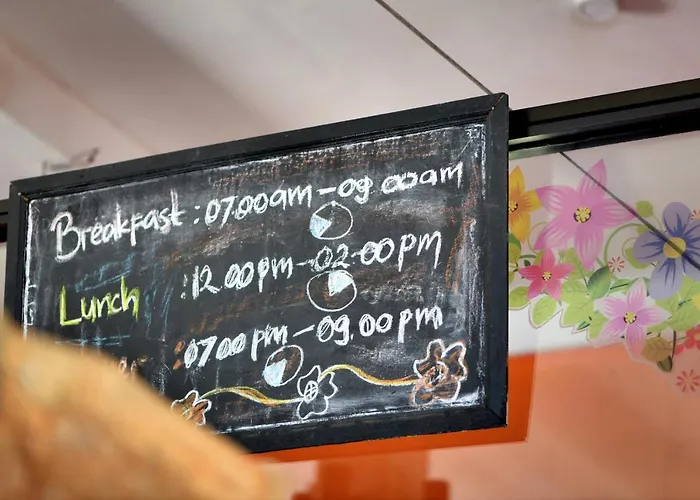 Breakfast : 07.00am - 09.00am
Lunch : 12.00pm - 02.00pm
: 07.00pm - 09.00pm